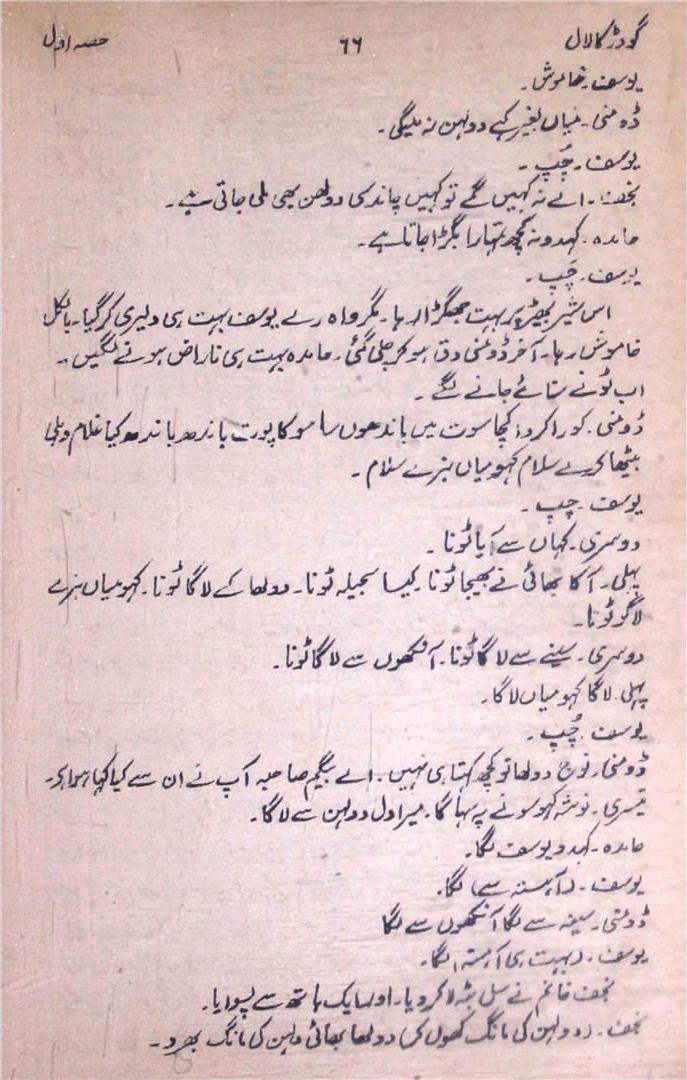 گودڑ کا لال ٦٦ حصہ اول
یوسف۔ خاموش۔
ڈومنی۔ میاں بغیر کہے دولہن نہ ملیگی۔
یوسف۔ چُپ۔
نجف۔ اے نہ کہیں گے تو کہیں چاند سی دولھن بھی ملی جاتی ہے۔
حامدہ۔ کہدو نہ کچھ تمہارا بگڑا جاتا ہے۔
یوسف۔ چَپ۔
اس شیر بھیڑ پر بہت جھگڑا رہا۔ مگر واہ رے یوسف بہت ہی دلیری کر گیا۔ بالکل
خاموش رہا۔ آخر ڈومنی دق ہو کر چلی گئی۔ حامدہ بہت ہی ناراض ہونے لگیں۔
اب ٹونے سنائے جانے لگے۔
ڈومنی۔ کورا کروا کچا سوت میں باندھوں ساسو کا پوت باندھ باندھ کیا غلام ویلی
بیٹھا کرے سلام کہو میاں بنرے سلام۔
یوسف۔ چپ۔
دوسری۔ کہاں سے آیا ٹونا۔
پہلی۔ آکا بھائی نے بھیجا ٹونا۔ کیسا سجیلہ ٹونا۔ دولھا کے لاگا ٹونا۔ کہو میاں بنرے
لاگو ٹونا۔
دوسری۔ سینے سے لاگا ٹونا۔ آنکھوں سے لاگا ٹونا۔
پہلی۔ لاگا کہو میاں لاگا۔
یوسف۔ چُپ۔
ڈومنی۔ نوج دولھا تو کچھ کہتا ہی نہیں۔ اے بیگم صاحبہ آپ نے ان سے کیا کہا ہوا ہے۔
تیسری۔ نوشہ کہو سونے پہ سہاگا۔ میرا دل دولہن سے لاگا۔
حامدہ۔ کہدو یوسف لگا۔
یوسف۔ (آہستہ سے) لگا۔
ڈومنی۔ سینہ سے لگا آنکھوں سے لگا
یوسف۔ (بہت ہی آہستہ) لگا۔
نجف خانم نے سل بٹہ لا کر دیا۔ اور ایک ہاتھ سے پسوایا۔
نجف۔ (دولہن کی مانگ کھول کر) دولھا بھائی دلہن کی مانگ بھرو۔